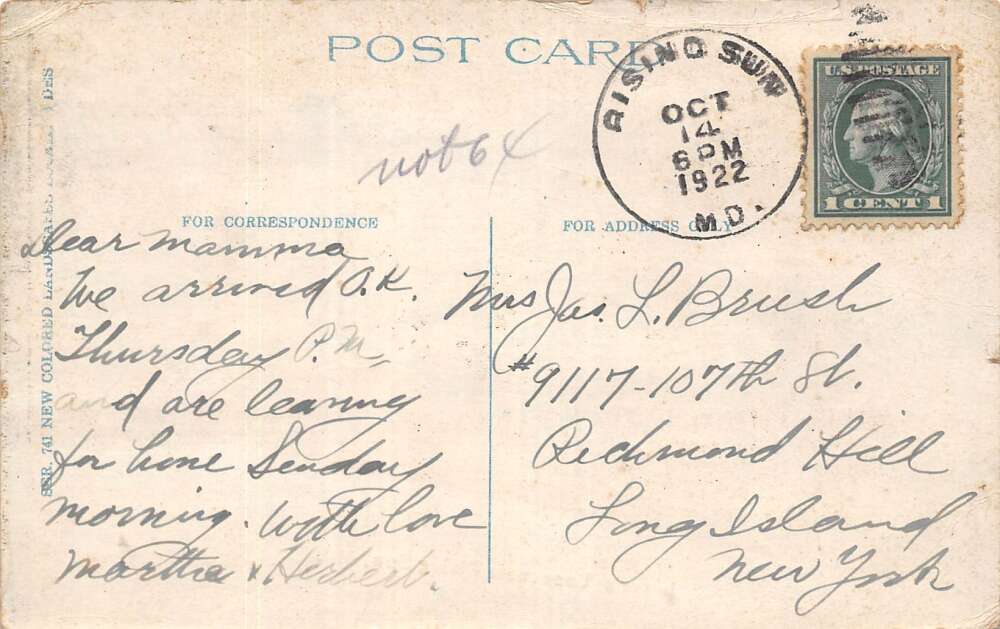 POST CARD
RISING SUN
OCT
14
6 PM
1922
MD.
U.S. POSTAGE
1 CENT 1
not64
FOR CORRESPONDENCE
FOR ADDRESS ONLY
SER. 741 NEW COLORED
DES
Dear Mamma
We arrived O.K.
Thursday P.M.
and are leaving
for home Sunday
morning. With love
Martha & Herbert.
Mrs Jas. L. Brush
#9117-107th St.
Richmond Hill
Long Island
New York